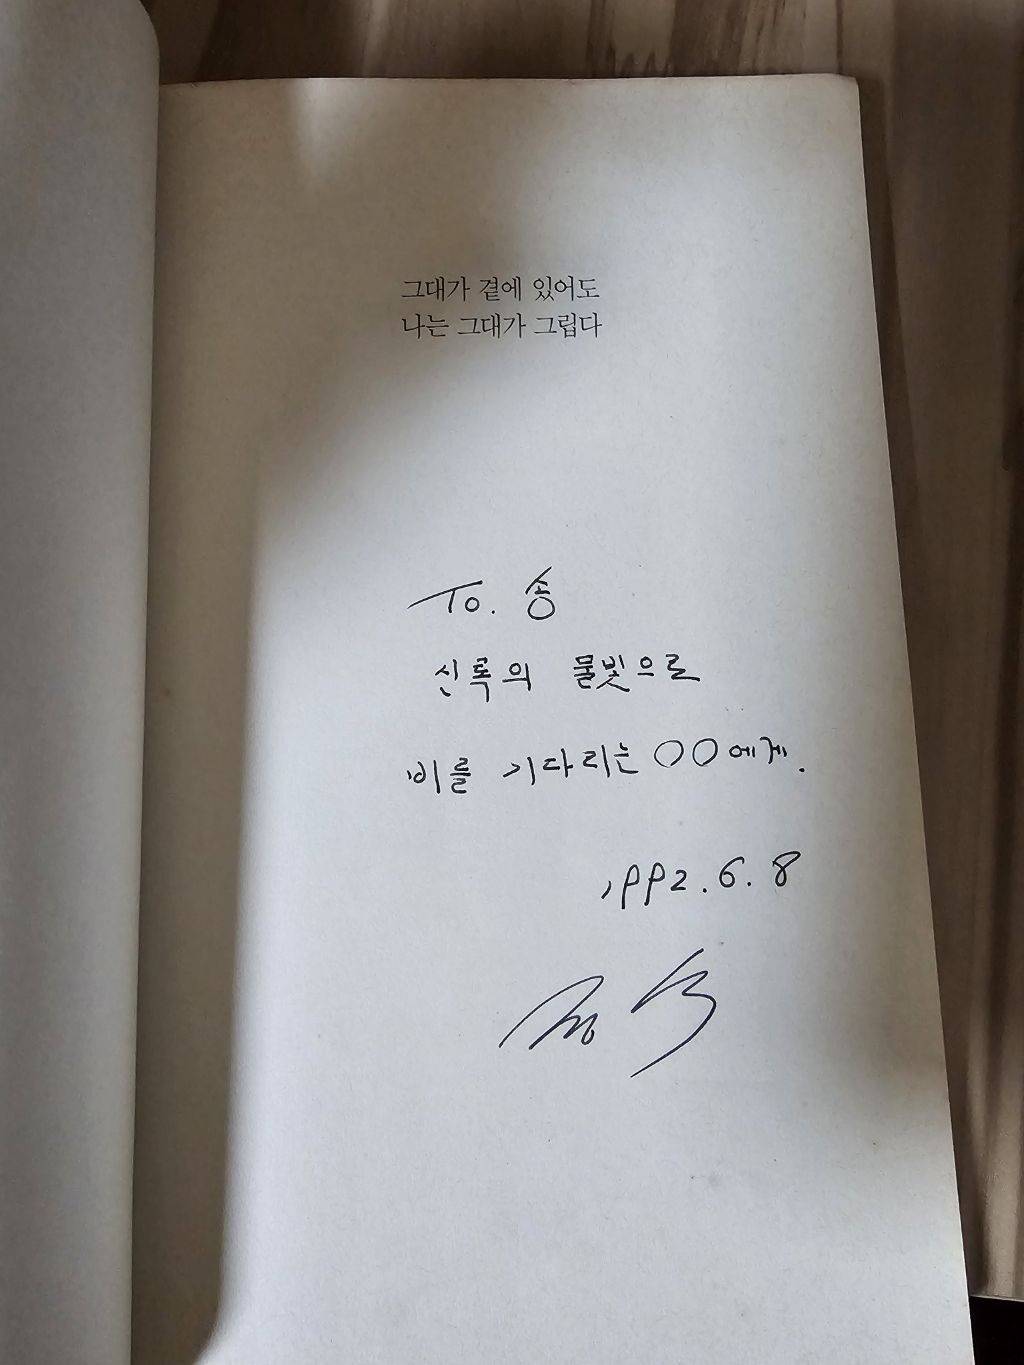 그대가 곁에 있어도
나는 그대가 그립다
To. 송
신록의 물빛으로
비를 기다리는 ○○에게.
1992.6.8